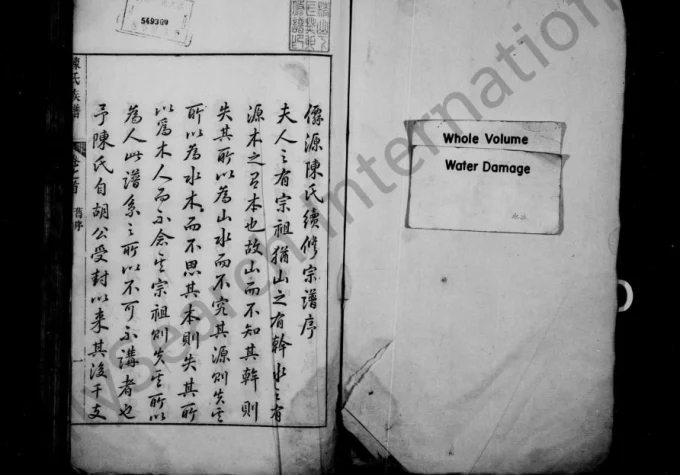 549309
陳氏族譜
卷之首
舊序
傃源陳氏續修宗譜序
夫人之有宗祖猶山之有幹水之有
源木之有本也故山而不知其幹則
失其所以為山水而不究其源則失其
所以為水木而不思其本則失其所
以為木人而不念其宗祖則失其所以
為人此譜系之所以不可不講者也
予陳氏自胡公受封以来其後干支
Whole Volume
Water Damage
ySearch International